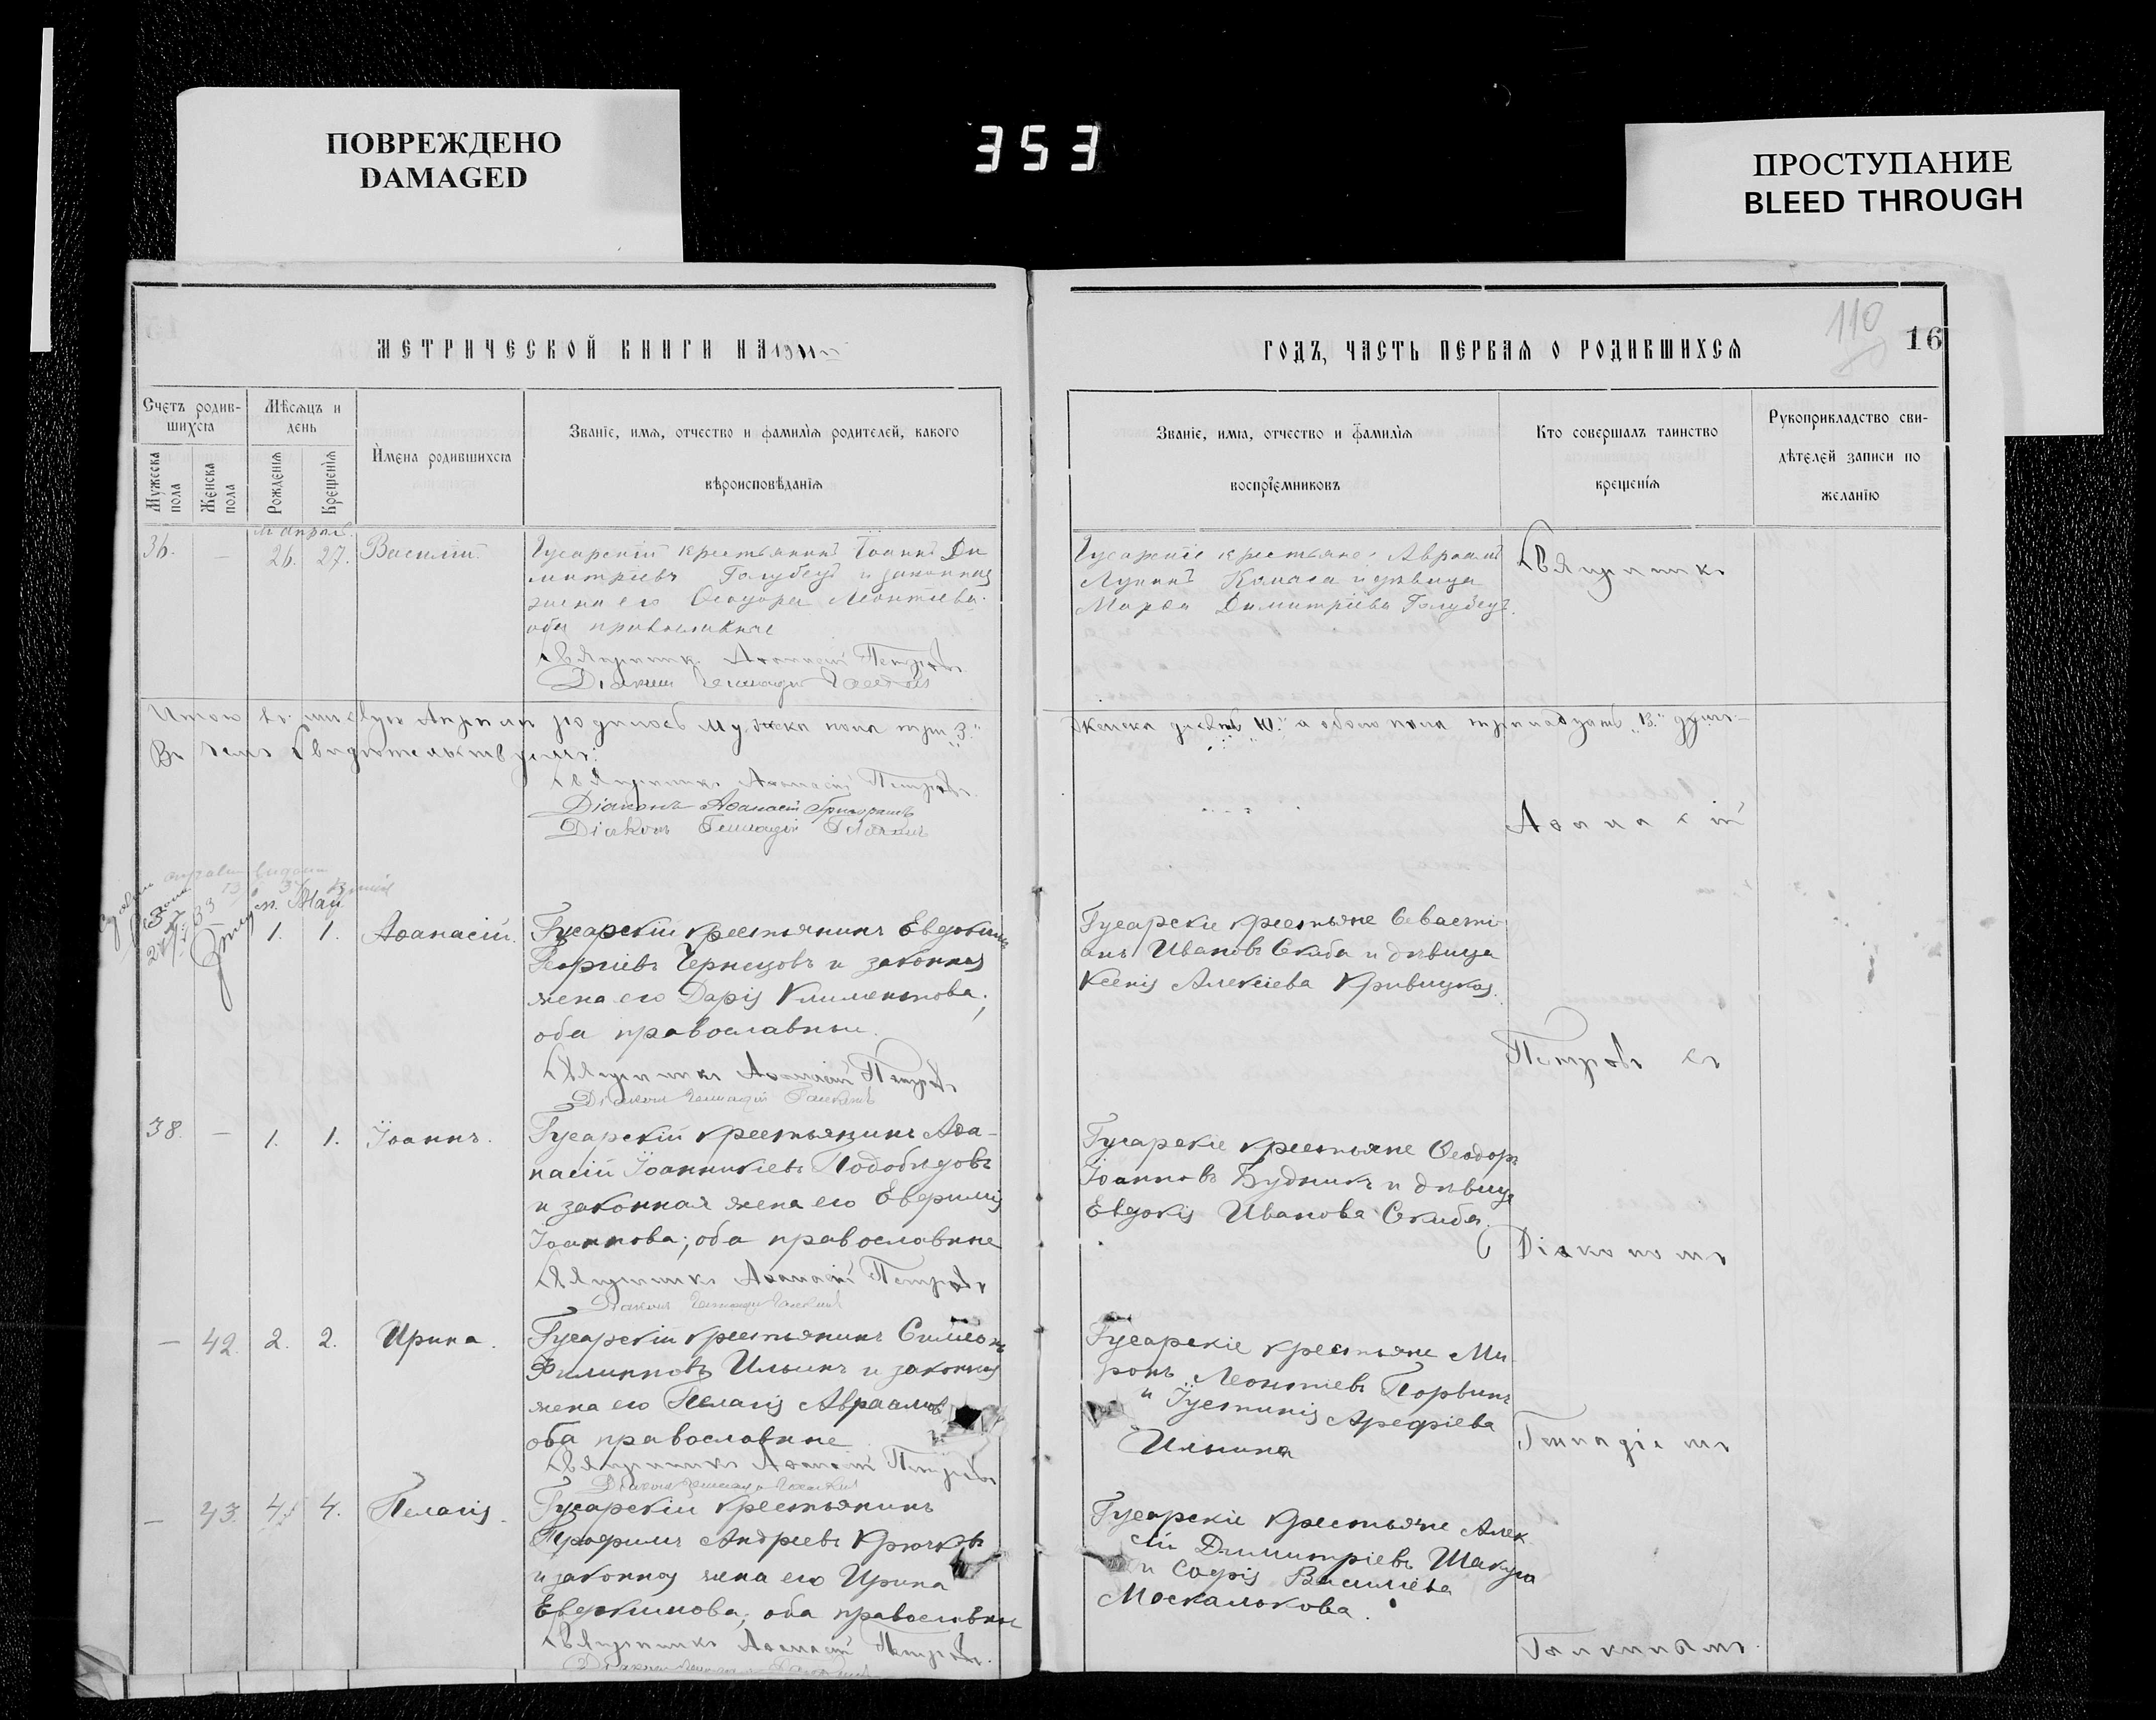 ПОВРЕЖДЕНО
DAMAGED
353
ПРОСТУПАНИЕ
BLEED THROUGH
МЕТРИЧЕСКОЙ КНИГИ НА 1911
ГОДЪ, ЧАСТЬ ПЕРВАЯ О РОДИВШИХСЯ
110
16
Счетъ родив-
шихся
Мѣсяцъ и
день
Мужеска
пола
Женска
пола
Рожденія
Крещенія
Имена родившихся
Званіе, имя, отчество и фамилія родителей, какого
вѣроисповѣданія
Званіе, имя, отчество и фамилія
воспріемниковъ
Кто совершалъ таинство
крещенія
Рукоприкладство сви-
дѣтелей записи по
желанію
36. — 26. 27. Василій.
Гусарскій крестьянинъ Іоаннъ Ди
митріевъ Голубецъ и законная
жена его Ѳеодора Леонтіева
оба православные
Священникъ Аѳанасій Петровъ
Діаконъ Геннадій
Гусарскіе крестьяне: Авраамъ
и дѣвица
Марѳа Димитріева Голубецъ.
Священникъ
Итого въ мѣсяцѣ Апрѣлѣ родилось мужеска пола три „3“
женска десять „10“ а обоего пола тринадцать „13“ душъ.
Въ чемъ свидѣтельствуемъ:
Священникъ Аѳанасій Петровъ
Діаконъ Аѳанасій
Діаконъ Геннадій
Аѳанасій
м. Май
37 — 1. 1. Аѳанасій.
Гусарскій крестьянинъ Евдокимъ
Георгіевъ Чернецовъ и законная
жена его Дарія Климентова;
оба православные.
Священникъ Аѳанасій Петровъ
Діаконъ Геннадій
Гусарскіе крестьяне Севасті
анъ Ивановъ Скиба и дѣвица
Ксенія Алексіева Кривицкая.
Петровъ съ
38. — 1. 1. Іоаннъ.
Гусарскій крестьянинъ Аѳа-
насій Іоанникіевъ Подобѣдовъ
и законная жена его Евфимія
Іоаннова; оба православные
Священникъ Аѳанасій Петровъ
Діаконъ Геннадій
Гусарскіе крестьяне Ѳеодоръ
Іоанновъ Будникъ и дѣвица
Евдокія Иванова Скиба.
Діакономъ
— 42. 2. 2. Ирина.
Гусарскій крестьянинъ Симеонъ
Филипповъ Ильинъ и законная
жена его Пелагія Авраамова
оба православные
Священникъ Аѳанасій Петровъ
Діаконъ Геннадій
Гусарскіе крестьяне Ми
ронъ Леонтіевъ Порвинъ
и Іустинія Арефіева
Ильина
Геннадіемъ
— 43. 4. 4. Пелагія.
Гусарскій крестьянинъ
Трофимъ Андреевъ Крючковъ
и законная жена его Ирина
Евдокимова; оба православные
Священникъ Аѳанасій Петровъ.
Діаконъ
Гусарскіе крестьяне Алек
сій Димитріевъ Шакула
и Софія Василіева
Москалюкова.